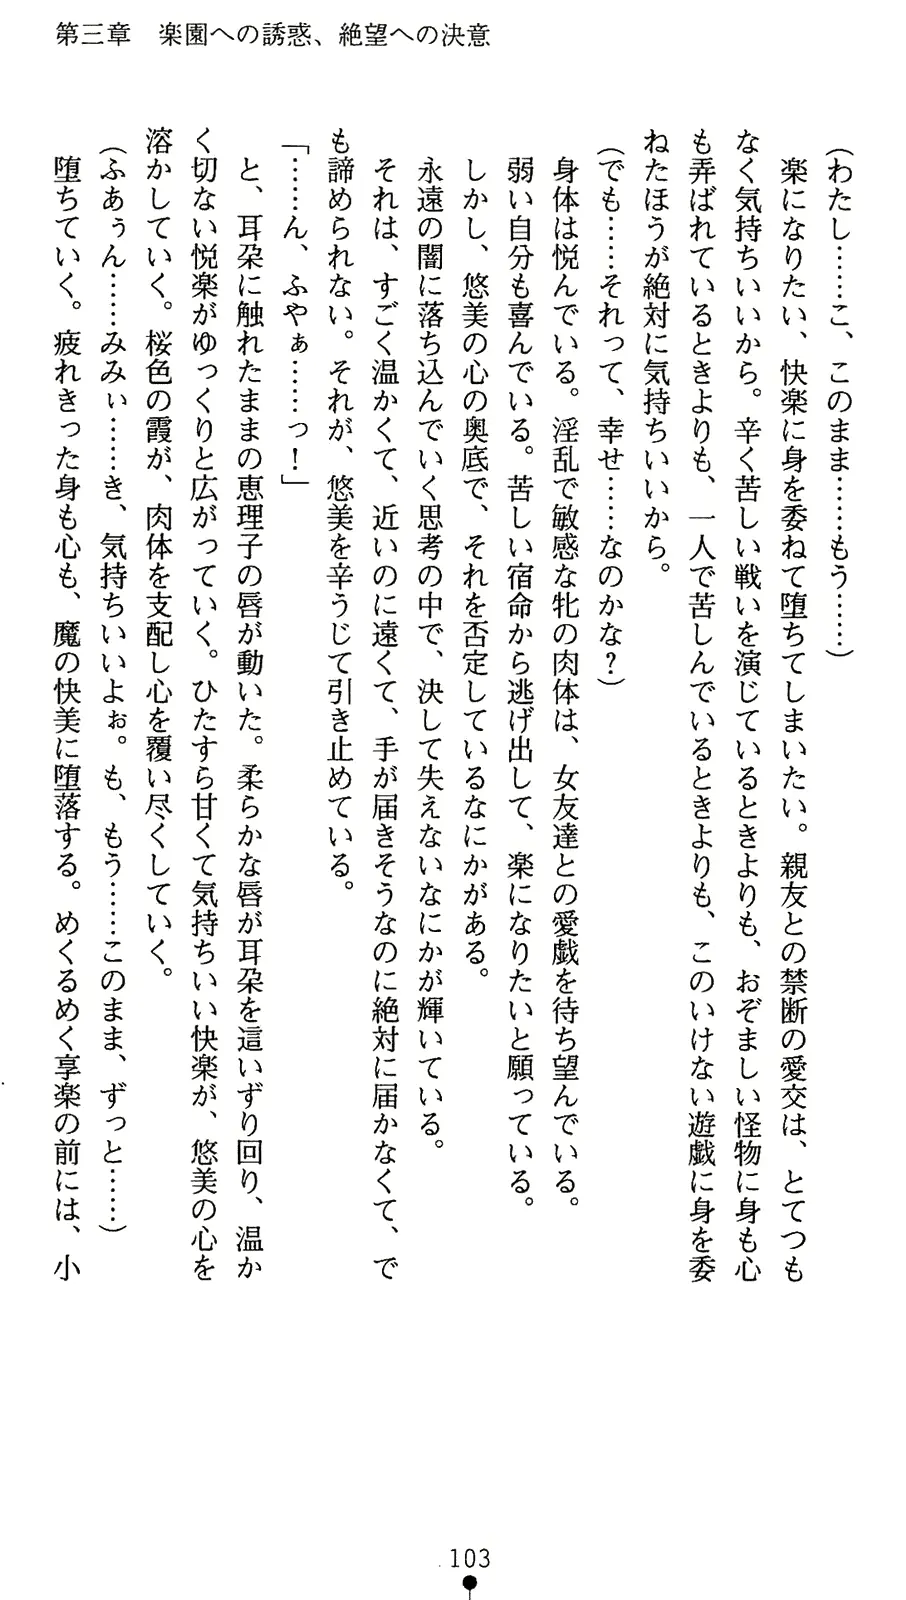 第三章　楽園への誘惑、絶望への決意
（わたし……こ、このまま……もう……）
　楽になりたい、快楽に身を委ねて堕ちてしまいたい。親友との禁断の愛交は、とてつも
なく気持ちいいから。辛く苦しい戦いを演じているときよりも、おぞましい怪物に身も心
も弄ばれているときよりも、一人で苦しんでいるときよりも、このいけない遊戯に身を委
ねたほうが絶対に気持ちいいから。
（でも……それって、幸せ……なのかな？）
　身体は悦んでいる。淫乱で敏感な牝の肉体は、女友達との愛戯を待ち望んでいる。
　弱い自分も喜んでいる。苦しい宿命から逃げ出して、楽になりたいと願っている。
　しかし、悠美の心の奥底で、それを否定しているなにかがある。
　永遠の闇に落ち込んでいく思考の中で、決して失えないなにかが輝いている。
　それは、すごく温かくて、近いのに遠くて、手が届きそうなのに絶対に届かなくて、で
も諦められない。それが、悠美を辛うじて引き止めている。
「……ん、ふやぁ……っ！」
　と、耳朶に触れたままの恵理子の唇が動いた。柔らかな唇が耳朶を這いずり回り、温か
く切ない悦楽がゆっくりと広がっていく。ひたすら甘くて気持ちいい快楽が、悠美の心を
溶かしていく。桜色の霞が、肉体を支配し心を覆い尽くしていく。
（ふあぅん……みみぃ……き、気持ちいいよぉ。も、もう……このまま、ずっと……）
　堕ちていく。疲れきった身も心も、魔の快美に堕落する。めくるめく享楽の前には、小
103